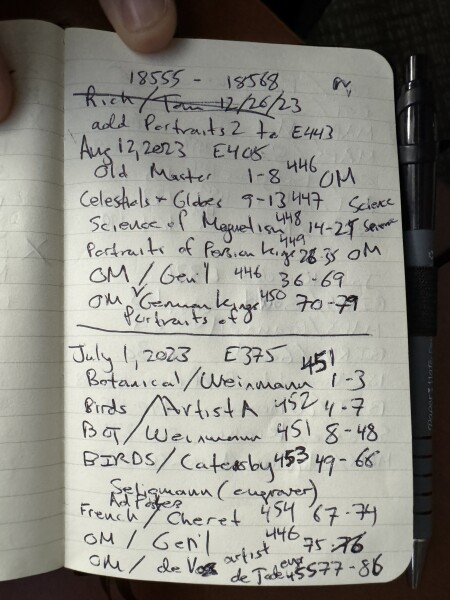 18555 - 18568
Rich/Tom 12/26/23
add Portraits 2 to E443
Aug 12, 2023 E405
Old Master 1-8 446 OM
Celestials + Globes 9-13 447 Science
Science of Magnetism 448 14-25 Science
Portraits of Persian Kings 449 26-35 OM
OM / Gen'l 446 36-69
OM German Kings 450 70-79
Portraits of
July 1, 2023 E375 451
Botanical/Weinmann 1-3
Birds /Artist A 452 4-7
BOT/Weinmann 451 8-48
BIRDS/Catesby 453 49-66
Seligmann (engraver)
Art Poster
French / Cheret 454 67-74
OM / Gen'l 446 75-76
OM / de Vos artist de Jode 455 77-86